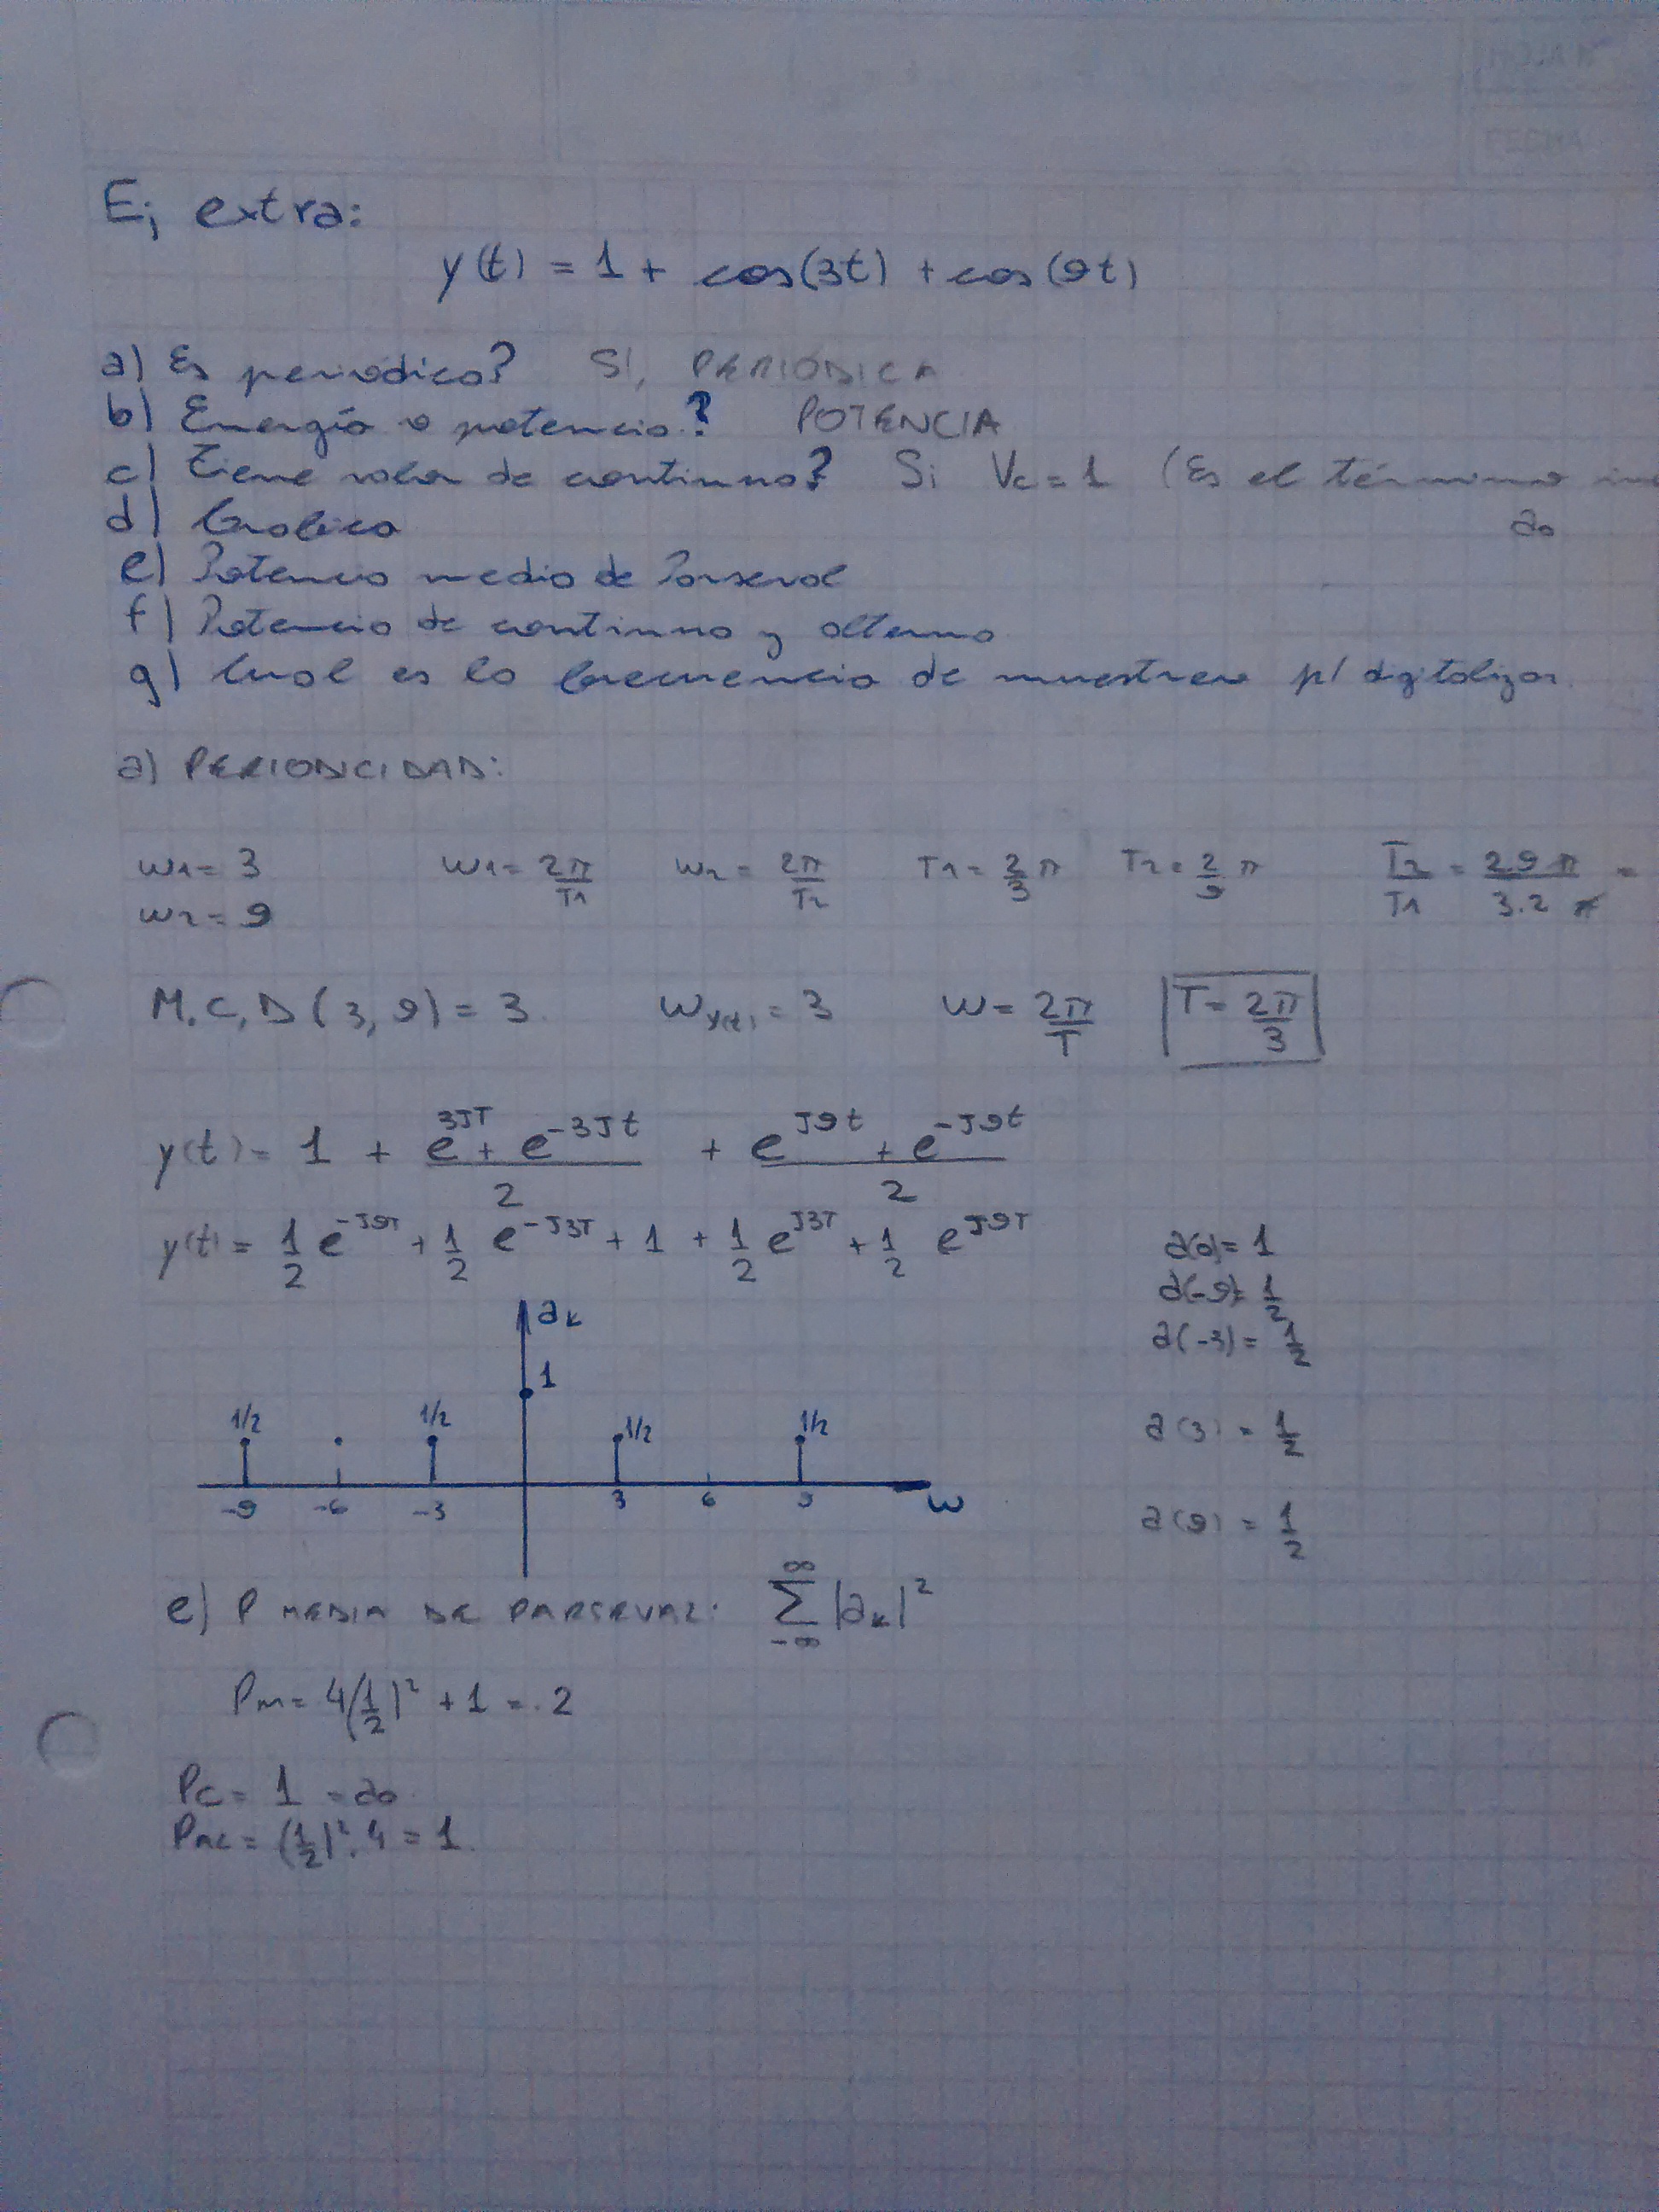 Ej extra:
y(t) = 1 + cos(3t) + cos(9t)
a) Es periódica? Sí, PERIÓDICA
b) Energía o potencia? POTENCIA
c) Tiene valor de continua? Si Vc = 1 (Es el término
a₀
d) Grafica
e) Potencia media de Parseval
f) Potencia de continua y alterna
g) Cual es la frecuencia de muestreo p/ digitalizar
a) PERIODICIDAD:
w₁ = 3 w₁ = 2π/T₁ w₂ = 2π/T₂ T₁ = 2/3 π T₂ = 2/9 π T₂/T₁ = 2.9 π / 3.2 π =
w₂ = 9
M.C.D (3, 9) = 3 w_y(t) = 3 w = 2π/T T = 2π/3
y(t) = 1 + (e^3JT + e^-3Jt)/2 + (e^J9t + e^-J9t)/2
y(t) = 1/2 e^-J9T + 1/2 e^-J3T + 1 + 1/2 e^J3T + 1/2 e^J9T
a(0) = 1
a(-9) = 1/2
a(-3) = 1/2
a(3) = 1/2
a(9) = 1/2
aₖ
1
1/2 1/2 1/2 1/2
-9 -6 -3 3 6 9 w
e) P MEDIA DE PARSEVAL: ∑_-∞^∞ |aₖ|²
Pm = 4(1/2)² + 1 = 2
Pc = 1 = a₀
PAC = (1/2)². 4 = 1.